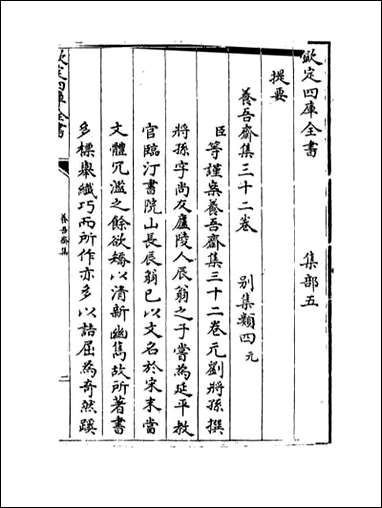 欽定四庫全書 集部五
提要
養吾齋集三十二卷 别集類四元
臣等謹案養吾齋集三十二卷元劉將孫撰
將孫字尚友廬陵人辰翁之子嘗為延平教
官臨汀書院山長辰翁已以文名於宋末當
文體冗濫之餘欲矯以清新幽雋故所著書
多標舉纖巧而所作亦多以詰屈為奇然蹊
欽定四庫全書
養吾齋集